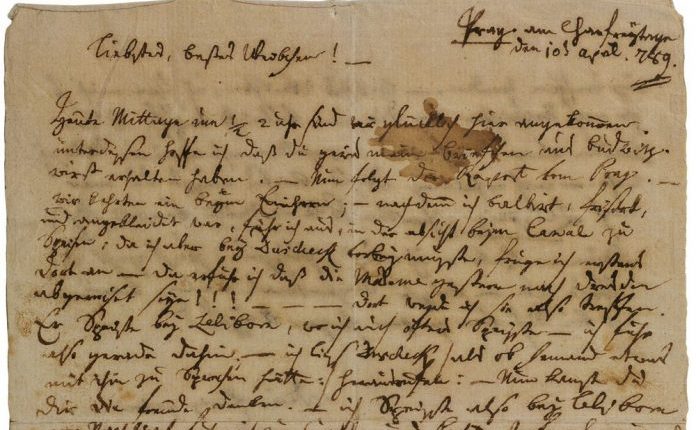 Prag. am Charfreytage
den 10t April. 789.
Liebstes, bestes Weibchen! —
Heute Mittags um 1/2 2 uhr sind wir glücklich hier angekommen.
unterdessen hoffe ich daß du gewis mein briefchen aus budwitz
wirst erhalten haben. — Nun folgt der Raport von Prag. —
wir kehrten ein beym Einhorn; — nachdem ich balbirt, frisirt,
und angekleidet war, fuhr ich aus, in der absicht beym Canal zu
Speisen; da ich aber bey Duscheck vorbey muste, frug ich erstens
dort an — da erfuhr ich daß die Madame gestern nach dresden
abgereiset seye!!! — dort werde ich sie also treffen.
Er Speiste bey Leliborn, wo ich auch öfters Speiste — ich fuhr
also gerade dahin. — ich lies Duscheck /als ob Jemand etwas
mit ihm zu Sprechen hätte:/ herausrufen: — Nun kanst du
dir die freude denken. — ich Speiste also bey Leliborn